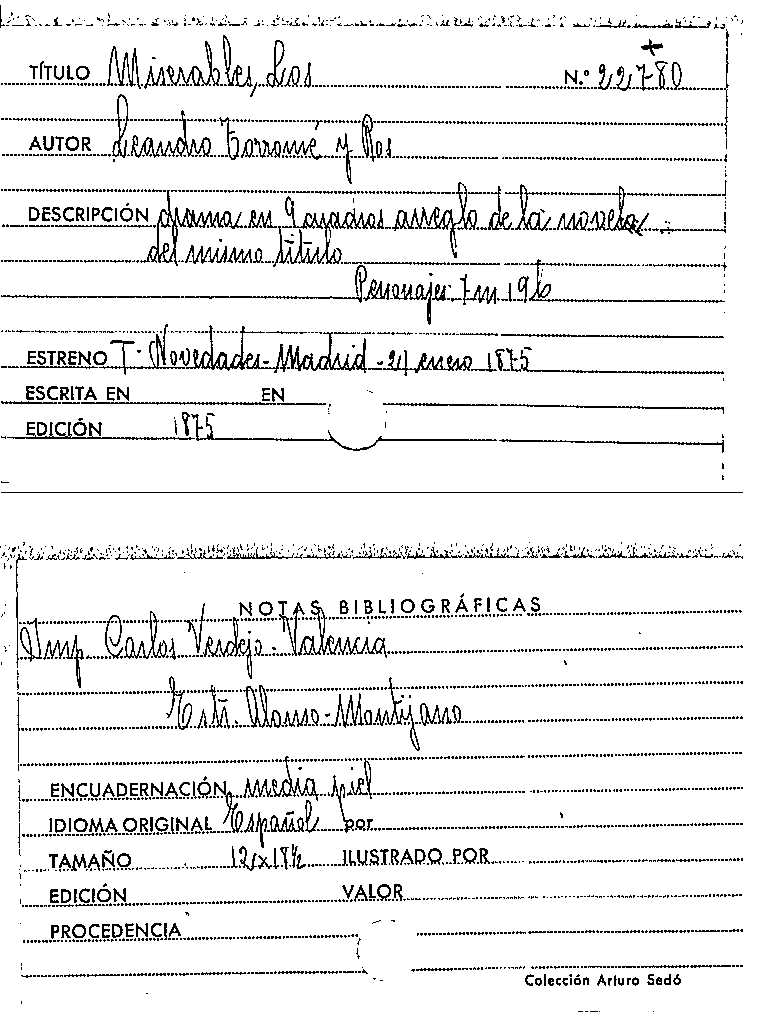 +
TÍTULO Miserables, Los N.º 22780
AUTOR Leandro Torromé y Ros
DESCRIPCIÓN drama en 9 cuadros arreglo de la novela
del mismo título
Personajes: 7 m 19 h
ESTRENO T. Novedades - Madrid - 21 enero 1875
ESCRITA EN EN
EDICIÓN 1875
NOTAS BIBLIOGRÁFICAS
Imp. Carlos Verdejo - Valencia
Estr. Alonso - Montijano
ENCUADERNACIÓN media piel
IDIOMA ORIGINAL Español por
TAMAÑO 12 x 18½ ILUSTRADO POR
EDICIÓN VALOR
PROCEDENCIA
Colección Arturo Sedó